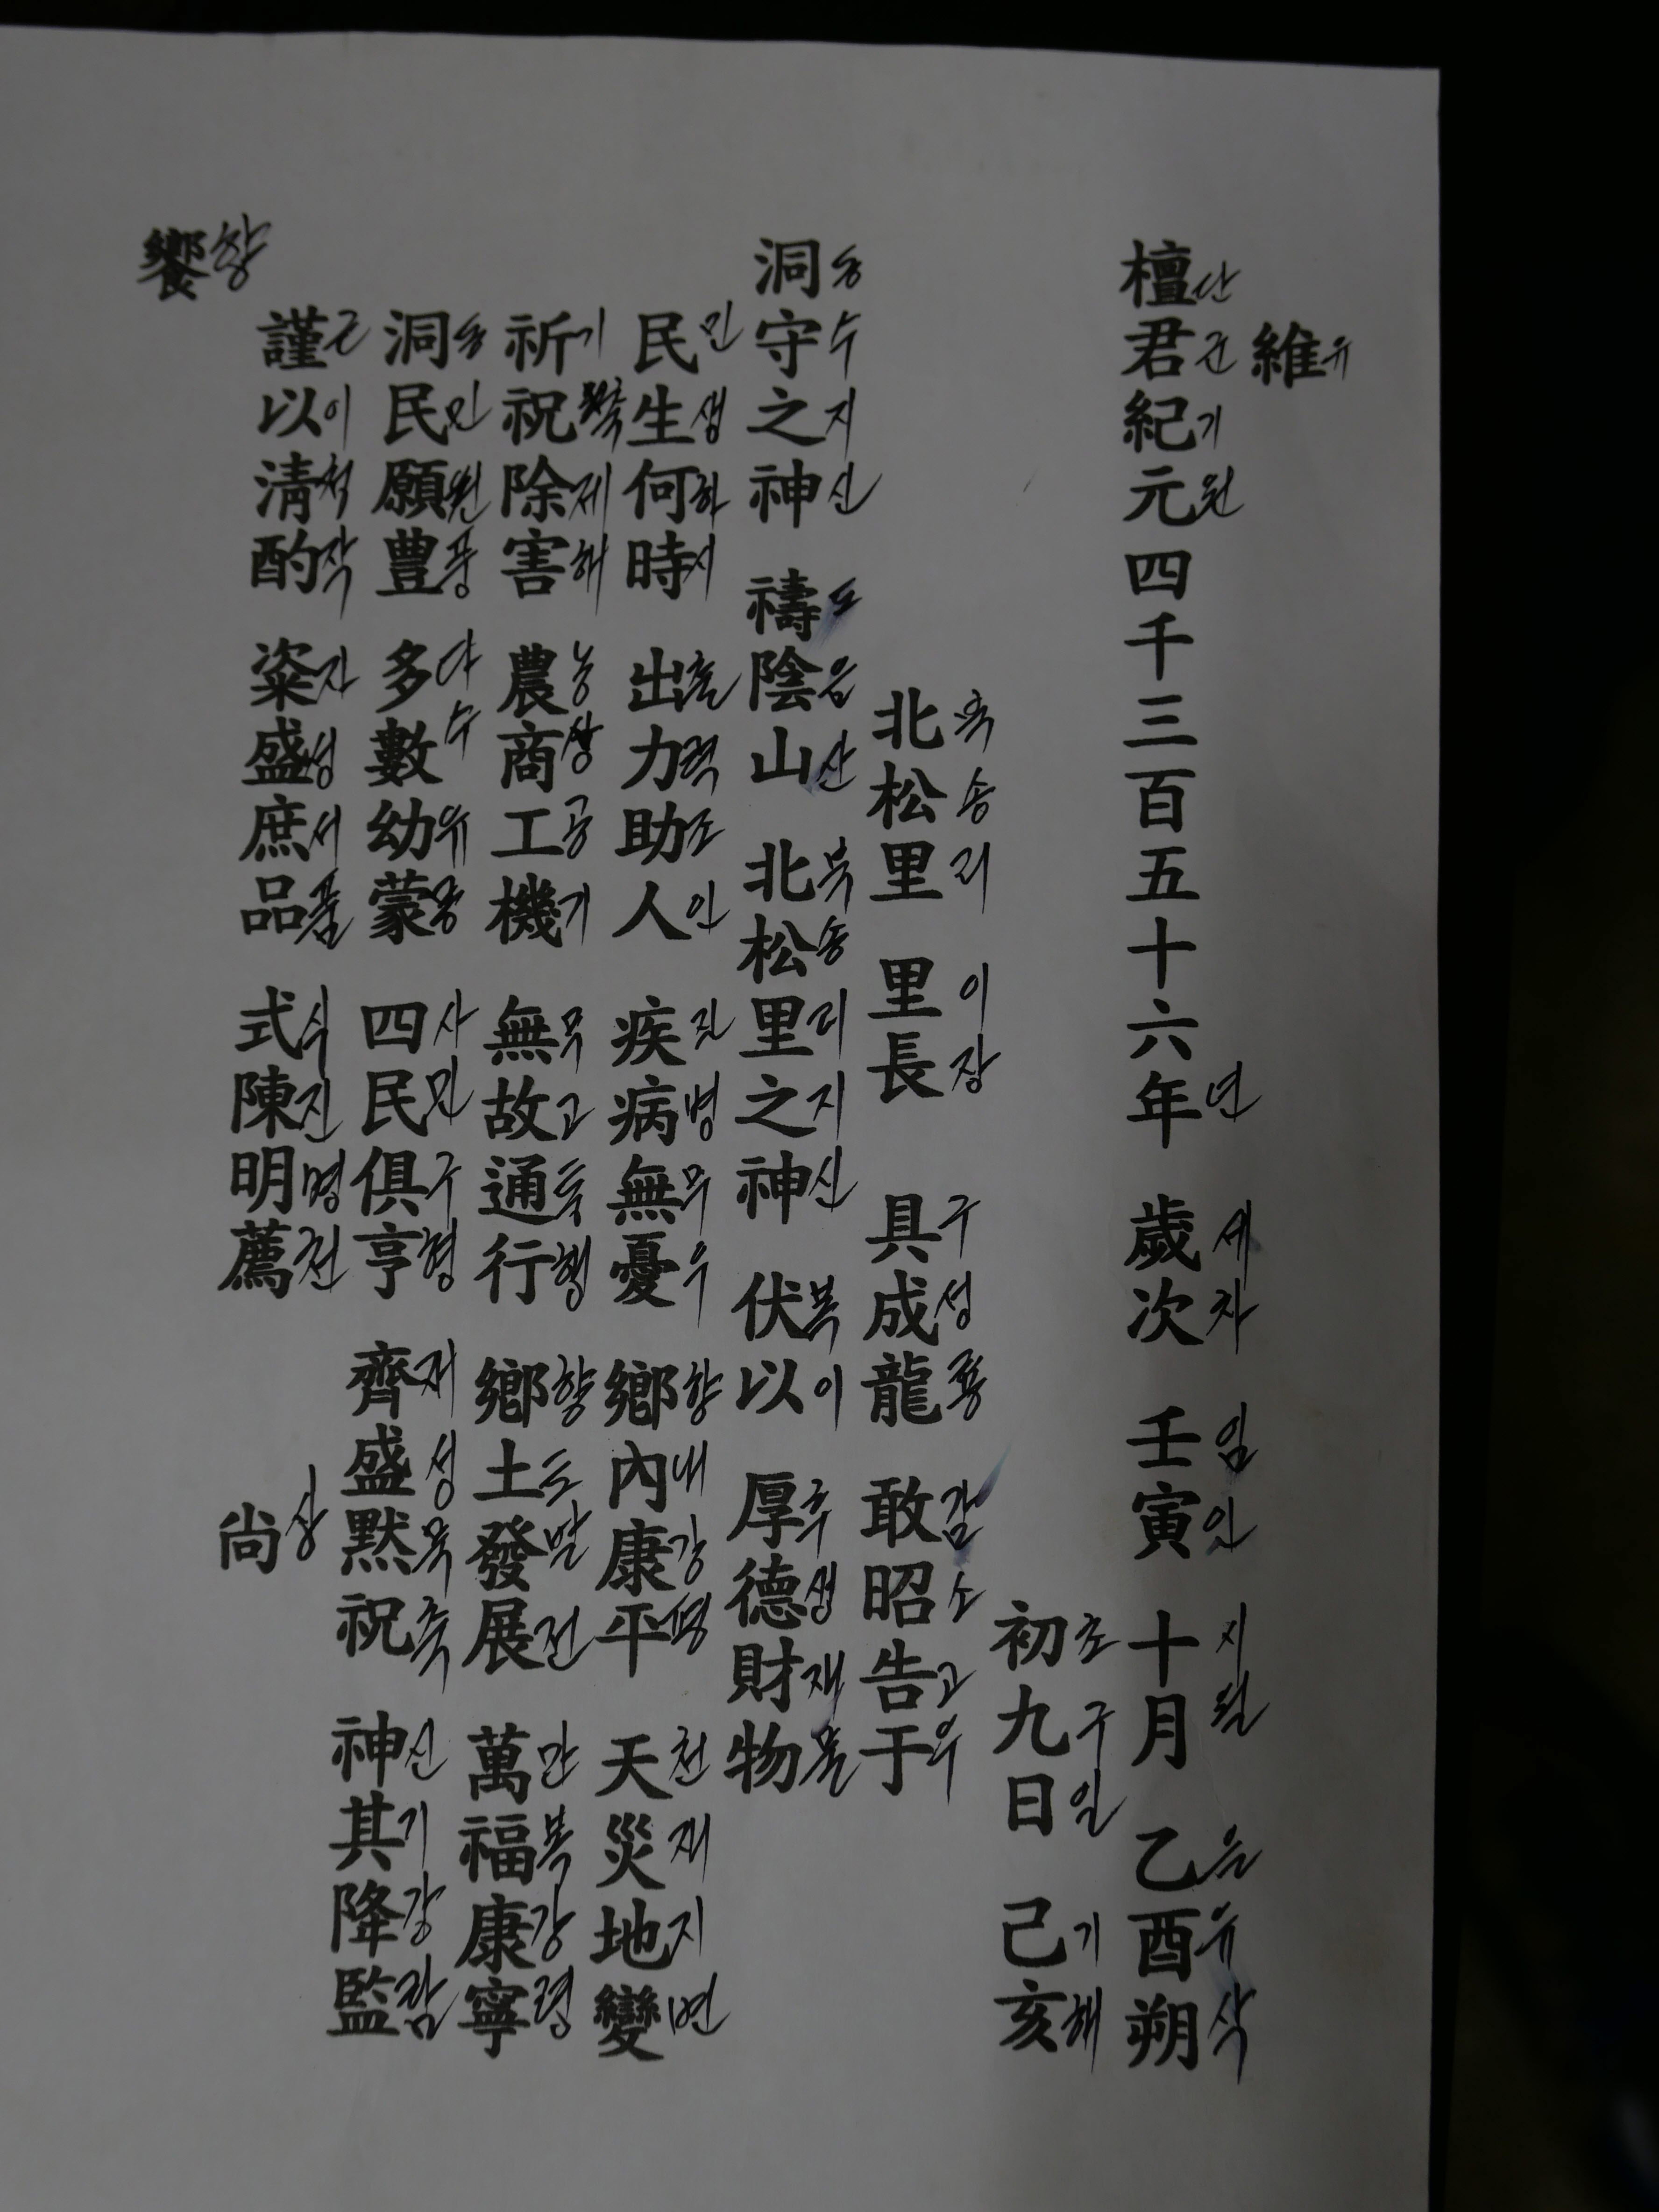 維
유
檀君紀元四千三百五十六年 歲次 壬寅 十月 乙酉朔
단군기원 년 세차 임인 지월 을유삭
初九日 己亥
초구일 기해
北松里 里長 具成龍 敢昭告于
북송리 이장 구성룡 감소고우
洞守之神 禱陰山 北松里之神 伏以 厚德財物
동수지신 도음산 북송리지신 복이 후 재물
民生何時 出力助人 疾病無憂 鄕內康平 天災地變
민생하시 출력조인 질병무우 향내강평 천재지변
祈祝除害 農商工機 無故通行 鄕土發展 萬福康寧
기축제해 농상공기 무고통행 향토발전 만복강령
洞民願豊 多數幼蒙 四民俱亨 齊盛默祝 神其降監
동민원풍 다수유몽 사민구형 재성묵축 신기강감
謹以淸酌 粢盛庶品 式陳明薦 尚
근이청작 자성서품 식진명천 상
饗
향